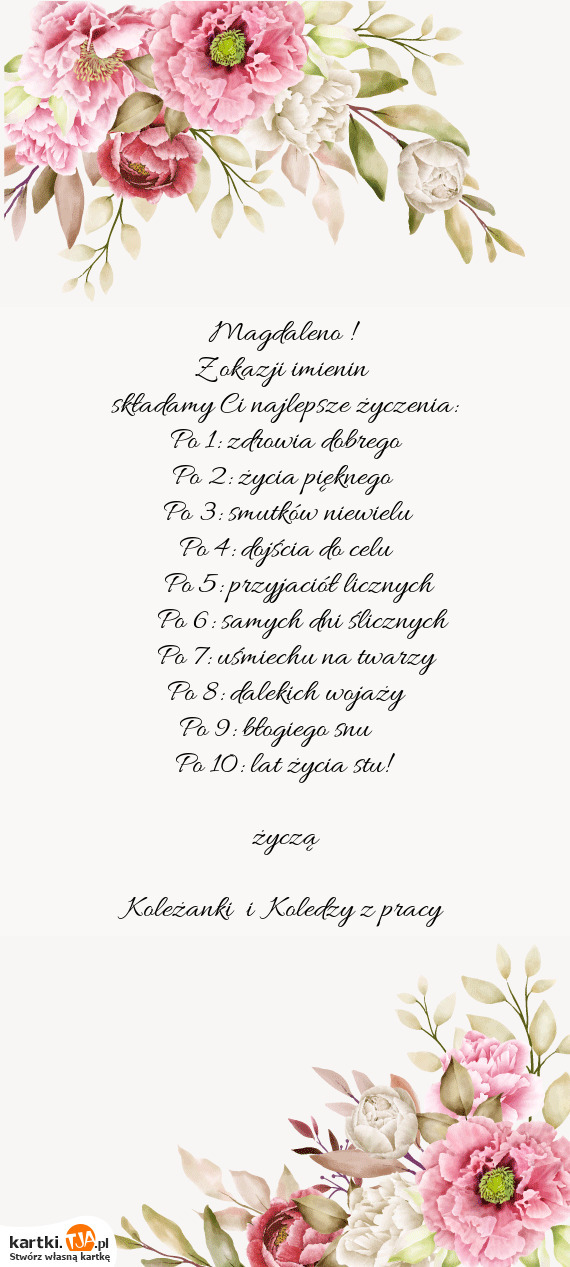 Magdaleno !
Z okazji imienin
składamy Ci najlepsze życzenia:
Po 1: zdrowia dobrego
Po 2: życia pięknego
Po 3: smutków niewielu
Po 4: dojścia do celu
Po 5: przyjaciół licznych
Po 6: samych dni ślicznych
Po 7: uśmiechu na twarzy
Po 8: dalekich wojaży
Po 9: błogiego snu
Po 10: lat życia stu!
życzą
Koleżanki i Koledzy z pracy
kartki.TJA.pl
Stwórz własną kartkę